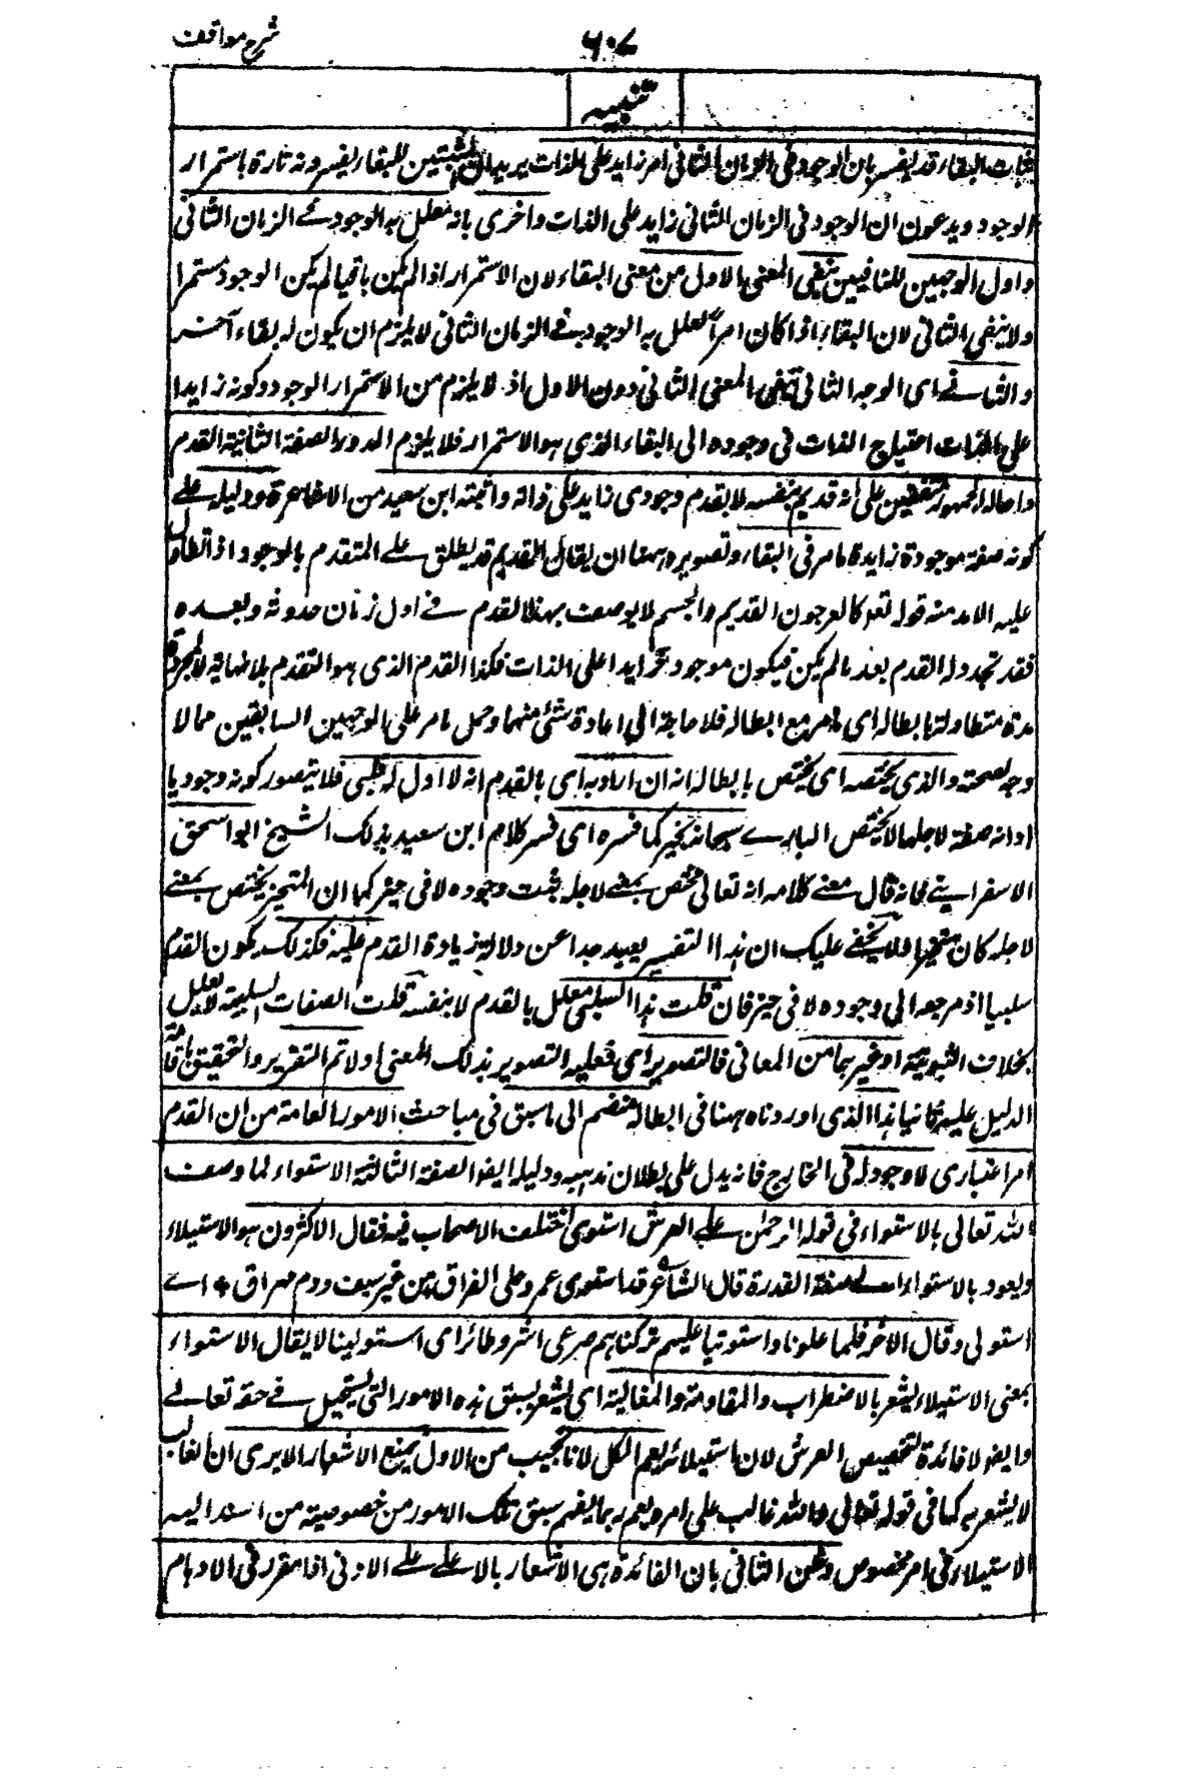 شرح مواقف
٦٠٧
تنبيه
اثبات البقاء قد يفسر بان الوجود فى الزمان الثانى امر زايد على الذات يريد ان المثبتين للبقاء يفسرونه تارة باستمرار
الوجود ويدعون ان الوجود فى الزمان الثانى زايد على الذات واخرى بانه معلل به الوجود فى الزمان الثانى
واول الوجهين للنافيين ينفى المعنى الاول من معنى البقاء لان الاستمرار اذا لم يكن باقيا لم يكن الوجود مستمرا
ولا ينفى الثانى لان البقاء اذا كان امرا يعلل به الوجود فى الزمان الثانى لا يلزم ان يكون له بقاء آخر
والثانى اى الوجه الثانى ينفى المعنى الثانى دون الاول اذ لا يلزم من الاستمرار الوجود وكونه زايدا
على الذات احتياج الذات فى وجوده الى البقاء الذى هو الاستمرار فلا يلزم الدور الصفة الثانية القدم
واحاله الجمهور متفقين على انه قديم بنفسه لا بقدم وجودى زايد على ذاته واثبته ابن سعيد من الاشاعرة ودليله على
كونه صفة موجودة زايدة ما مر فى البقاء وتصويره ههنا ان يقال القديم قد يطلق على المتقدم بالوجود اذا تطاول
عليه الامد منه قوله تعه كالعرجون القديم والجسم لا يوصف بهذا القدم فى اول زمان حدوثه وبعده
فقد تجدد له القدم بعد ما لم يكن فيكون موجودا زايدا على الذات فكذا القدم الذى هو التقدم بلا نهاية لا لمجرد
مدة متطاولة ابطاله اى ما مر مع ابطاله فلا حاجة الى اعادة شئ منهما وحمل ما مر على الوجهين السابقين مما لا
وجه لصحته والذى يختصه اى يختص بابطاله انه ان اراد به اى بالقدم انه لا اول له فسلبى فلا يتصور كونه وجوديا
او انه صفة لاجلها لا يختص البارى سبحانه بحيز كما فسره اى فسر كلام ابن سعيد بذلك الشيخ ابو اسحق
الاسفراينى فانه قال معنى كلامه انه تعالى مختص بمعنى لاجله ثبت وجوده لا فى حيز كما ان المتحيز يختص بمعنى
لاجله كان متحيزا ولا يخفى عليك ان هذا التفسير بعيد جدا عن دلالة زيادة القدم عليه فكذلك يكون القدم
سلبيا اذ مرجعه الى وجوده لا فى حيز فان قلت هذا السلبى معلل بالقدم لا بنفسه قلت الصفات السلبية لا تعلل
بخلاف الثبوتية او غيرها من المعانى فالتصوير اى فعليه التصوير بذلك المعنى اولا ثم التقرير والتحقيق باقامة
الدليل عليه ثانيا هذا الذى اوردناه ههنا فى ابطاله منضم الى ما سبق فى مباحث الامور العامة من ان القدم
امر اعتبارى لا وجود له فى الخارج فانه يدل على بطلان مذهبه ودليله ايضا الصفة الثالثة الاستواء لما وصف
الله تعالى بالاستواء فى قوله الرحمن على العرش استوى اختلف الاصحاب فيه فقال الاكثرون هو الاستيلاء
ويعود بالاستواء الى صفة القدرة قال الشاعر قد استوى عمرو على العراق من غير سيف ودم مهراق + اى
استولى وقال الآخر فلما علونا واستوينا عليهم تركناهم صرعى لنسر وطائر اى استولينا لا يقال الاستواء
بمعنى الاستيلاء يشعر بالاضطراب والمقاومة والمغالبة اى يشعر بسبق هذه الامور التى يستحيل فى حقه تعالى
وايضا لا فائدة لتخصيص العرش لان استيلائه يعم الكل لانا نجيب من الاول بمنع الاشعار الا يرى ان الغالب
لا يشعر به كما فى قوله تعالى والله غالب على امره نعم ربما يفهم سبق تلك الامور من خصوصية من اسند اليه
الاستيلاء فى امر مخصوص وعن الثانى بان الفائدة هى الاشعار بالاعلى على الادنى اذا مقرر فى الاوهام